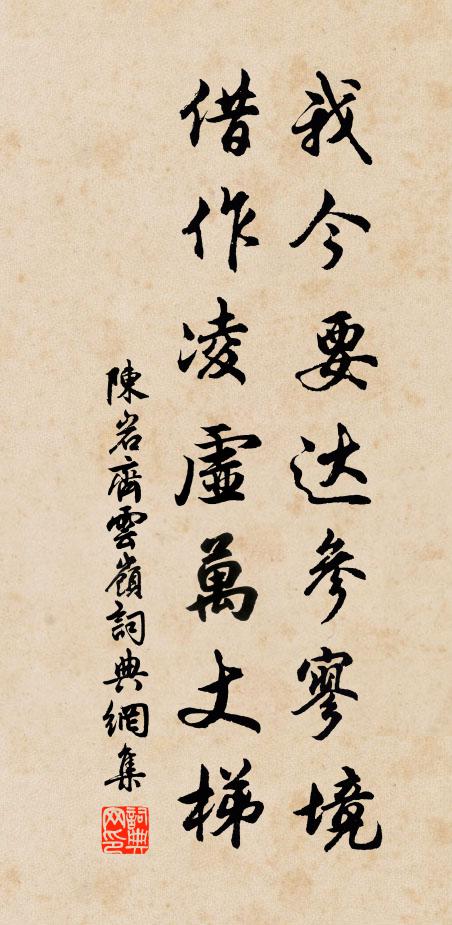 我今要达參寥境
借作凌虛萬丈梯
陳岩齊雲嶺詞典網集
詞典网印